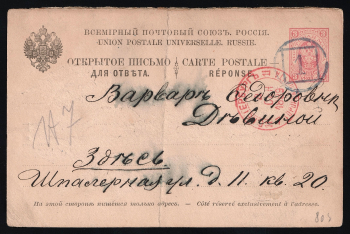 ВСЕМІРНЫЙ ПОЧТОВЫЙ СОЮЗЪ. РОССІЯ.
UNION POSTALE UNIVERSELLE. RUSSIE.
ОТКРЫТОЕ ПИСЬМО – CARTE POSTALE
ДЛЯ ОТВѢТА. RÉPONSE.
3 3
1
Варварѣ Ѳедоровнѣ
Дѣвиной
Здѣсь.
Шпалерная ул. д. 11. кв. 20.
На этой сторонѣ пишется только адресъ. – Côté réservé exclusivement à l'adresse.